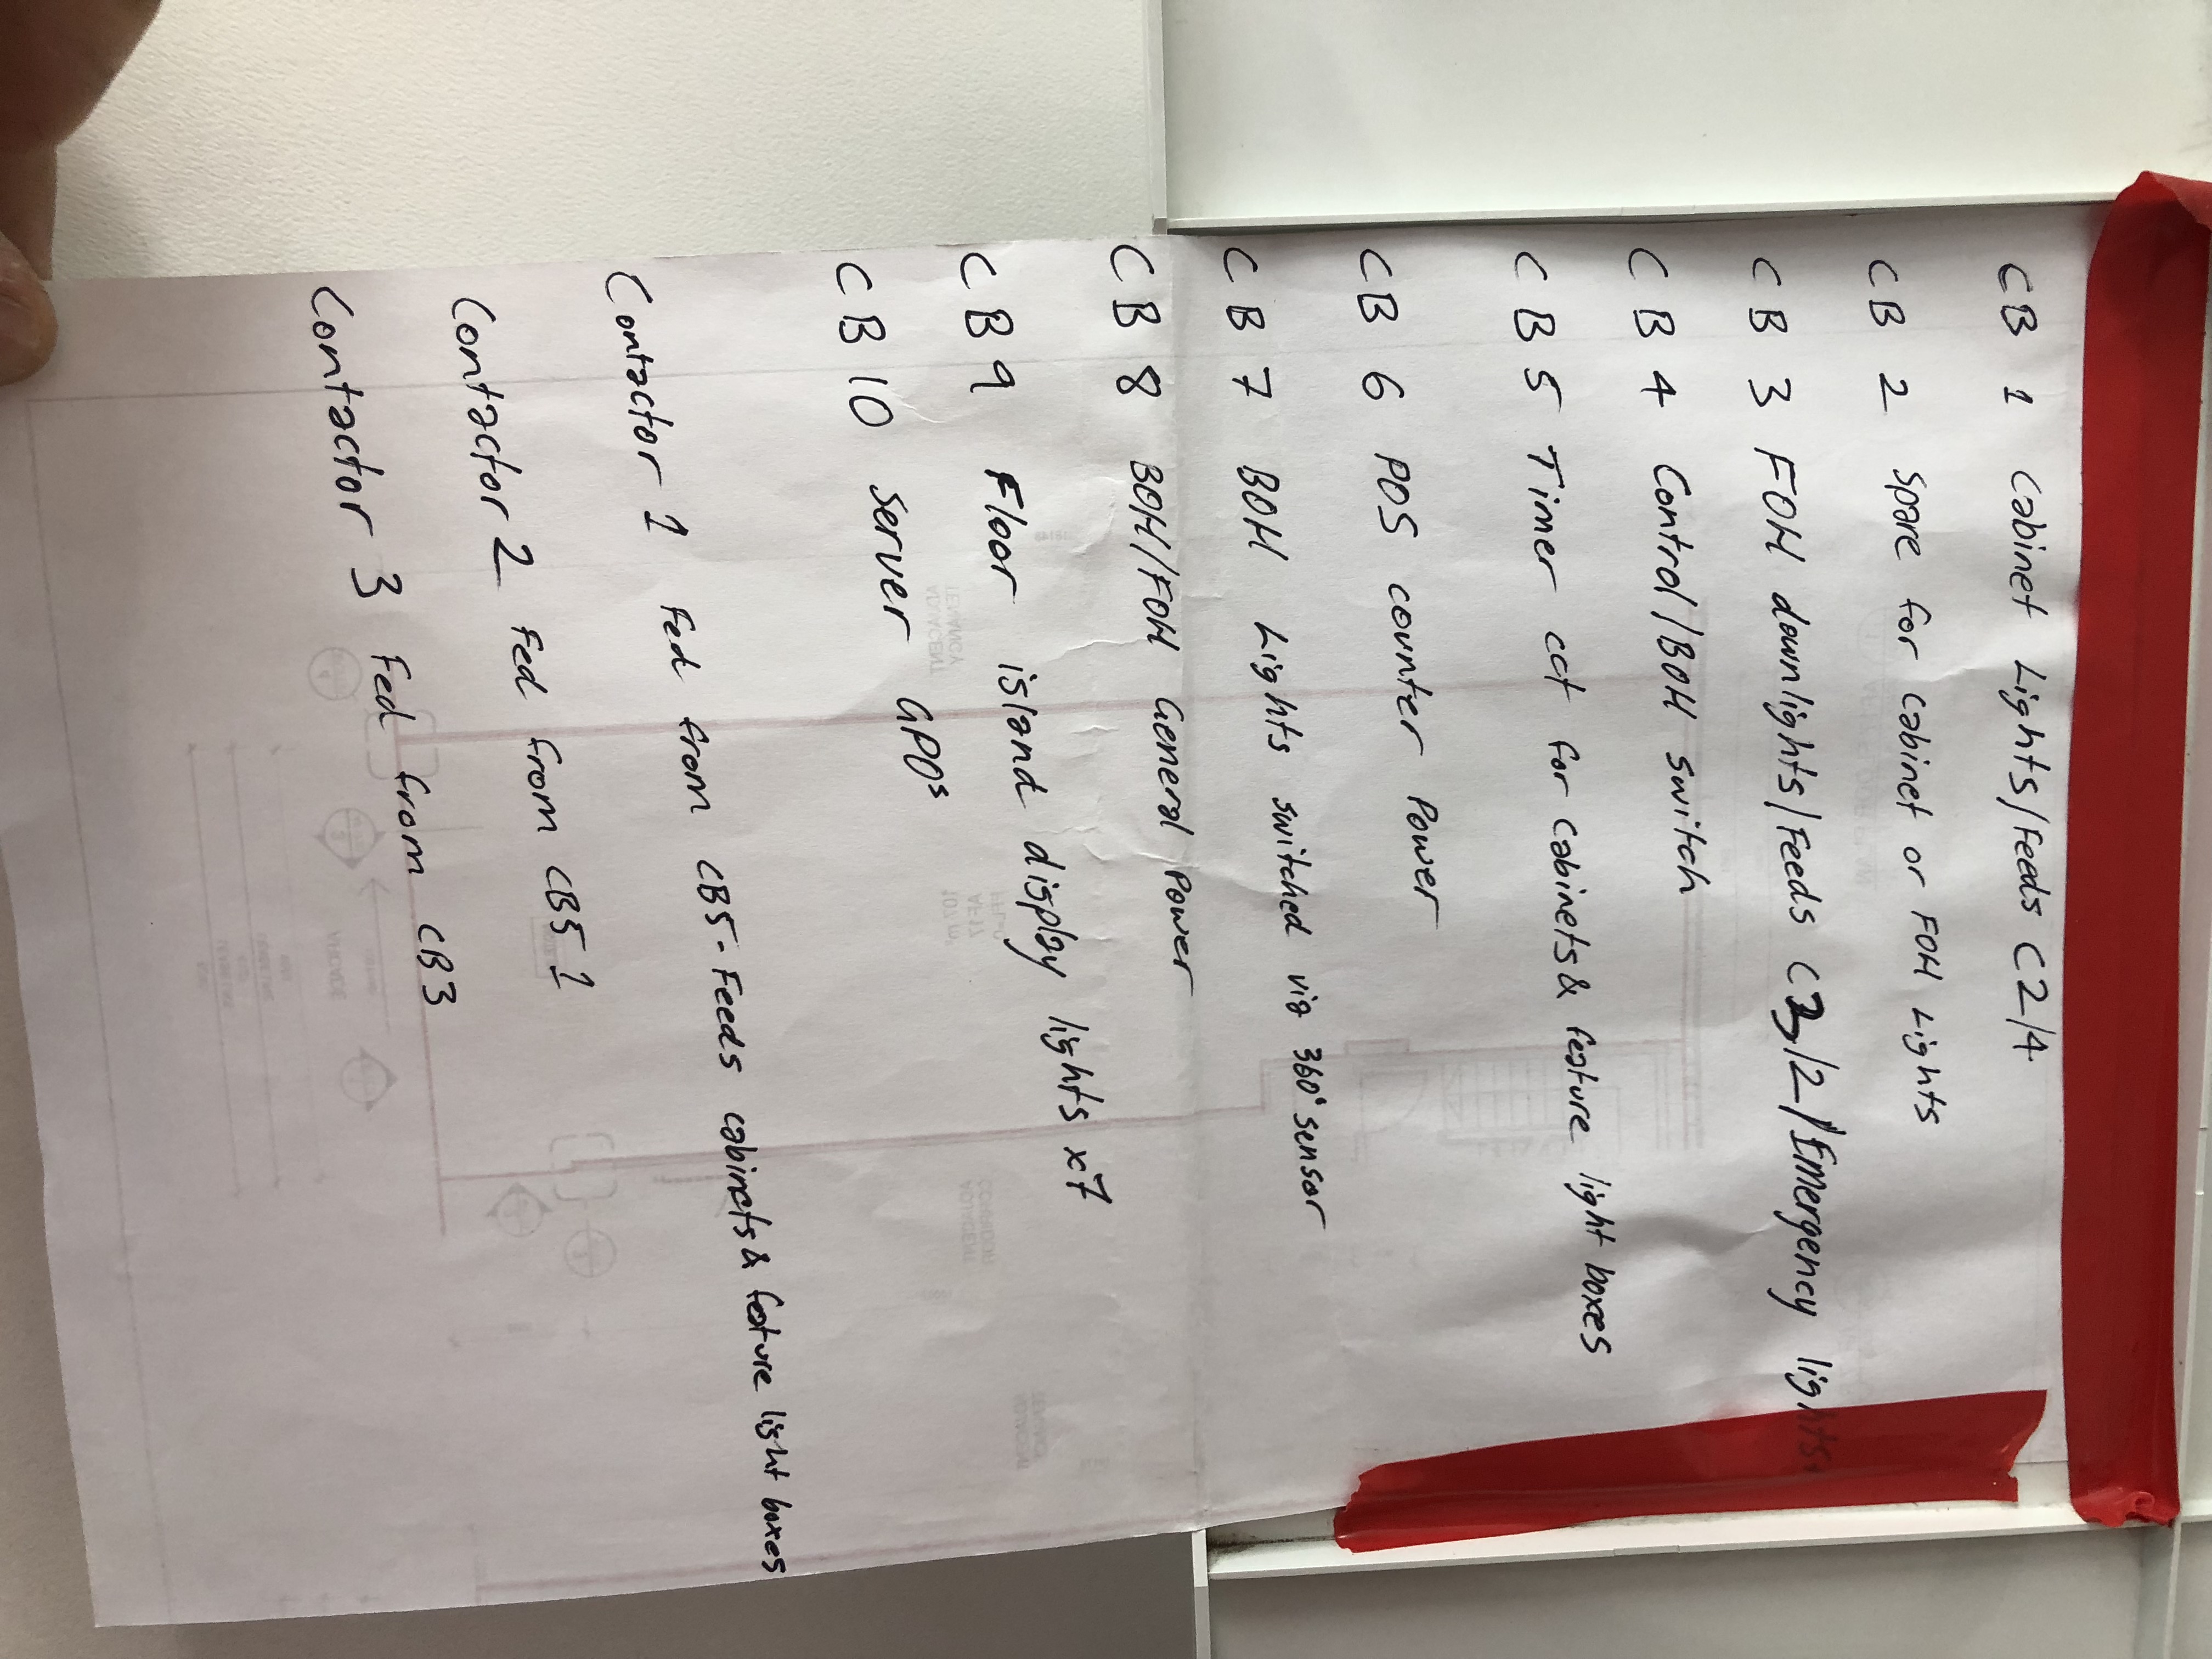 CB 1 Cabinet Lights/Feeds C2/4
CB 2 Spare for Cabinet or FOH Lights
CB 3 FOH downlights/Feeds C3/2/Emergency lights
CB 4 Control/BOH switch
CB 5 Timer cct for cabinets & feature light boxes
CB 6 POS counter Power
CB 7 BOH Lights switched via 360° sensor
CB 8 BOH/FOH General Power
CB 9 Floor island display lights x7
CB 10 Server GPOs
Contactor 1 Fed from CB5 - Feeds cabinets & feature light boxes
Contactor 2 Fed from CB5 1
Contactor 3 Fed from CB3